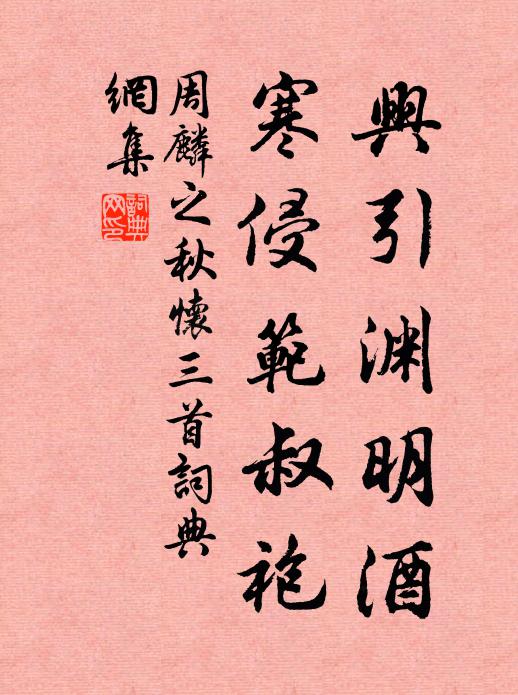 興引渊明酒
寒侵範叔袍
周麟之秋懷三首詞典
網集
詞典
网印